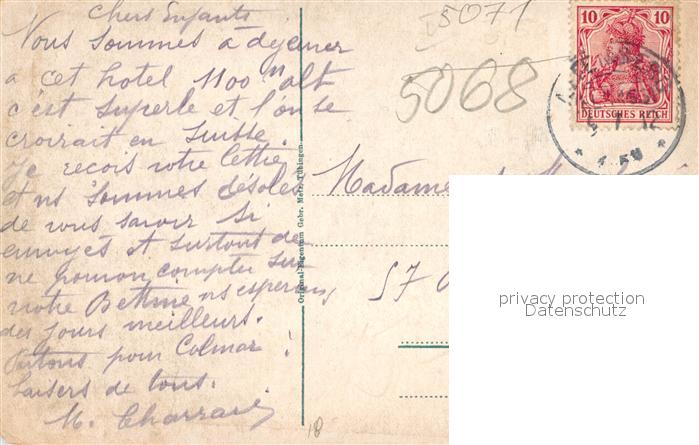 Chers Enfants
Nous sommes a dejeuner
a cet hotel 1100 m alt
c'est superbe et l'on se
croirait en Suisse.
Je recois votre lettre
et ns sommes désolés
de vous savoir si
ennuyés et surtout de
ne pouvoir compter sur
votre ns esperons
des jours meilleurs.
Partons pour Colmar !
baisers de tous.
M.
5071
5068
10 10
DEUTSCHES REICH
Madame
57
Original-Eigentum Gebr. Metz, Tübingen
privacy protection
Datenschutz
18